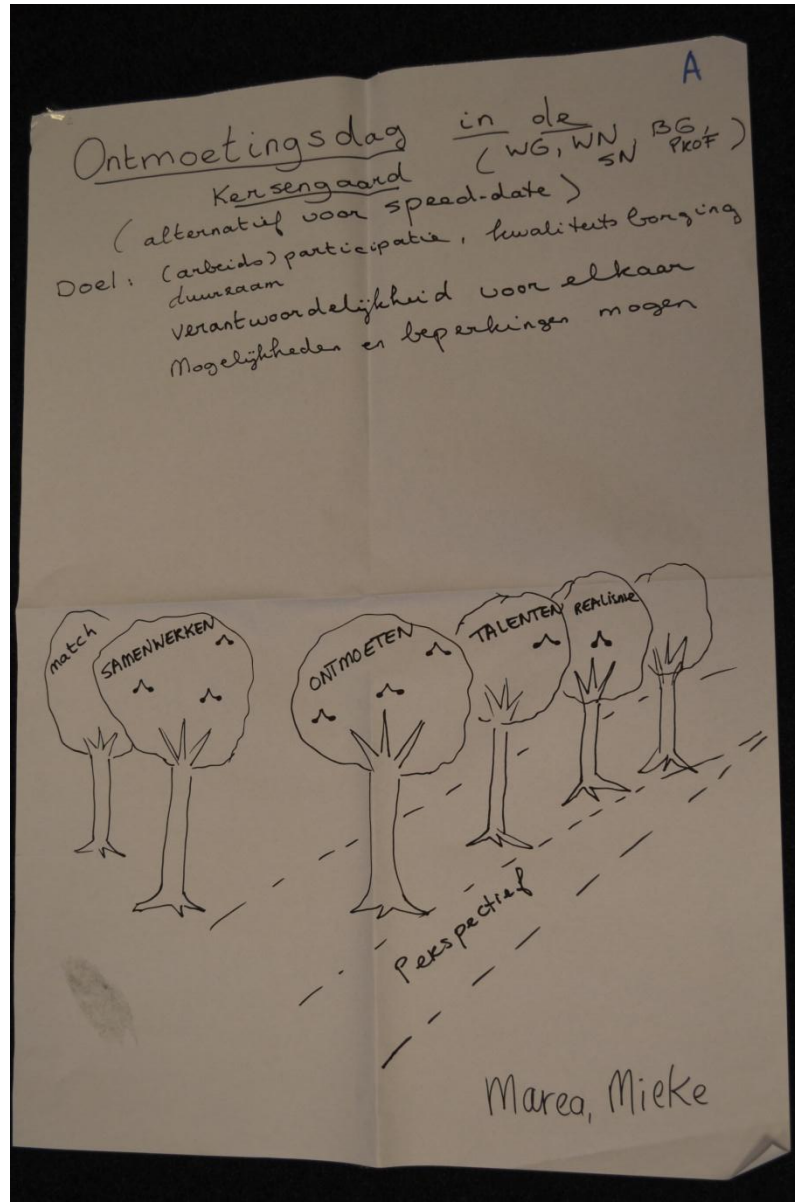 A
Ontmoetingsdag in de
Kersengaard (WG, WN, SN, BG, PROF)
(alternatief voor speed-date)
Doel: (arbeids)participatie, kwaliteitsborging
duurzaam
verantwoordelijkheid voor elkaar
Mogelijkheden en beperkingen mogen
match
SAMENWERKEN
ONTMOETEN
TALENTEN
REALISME
Perspectief
Marea, Mieke